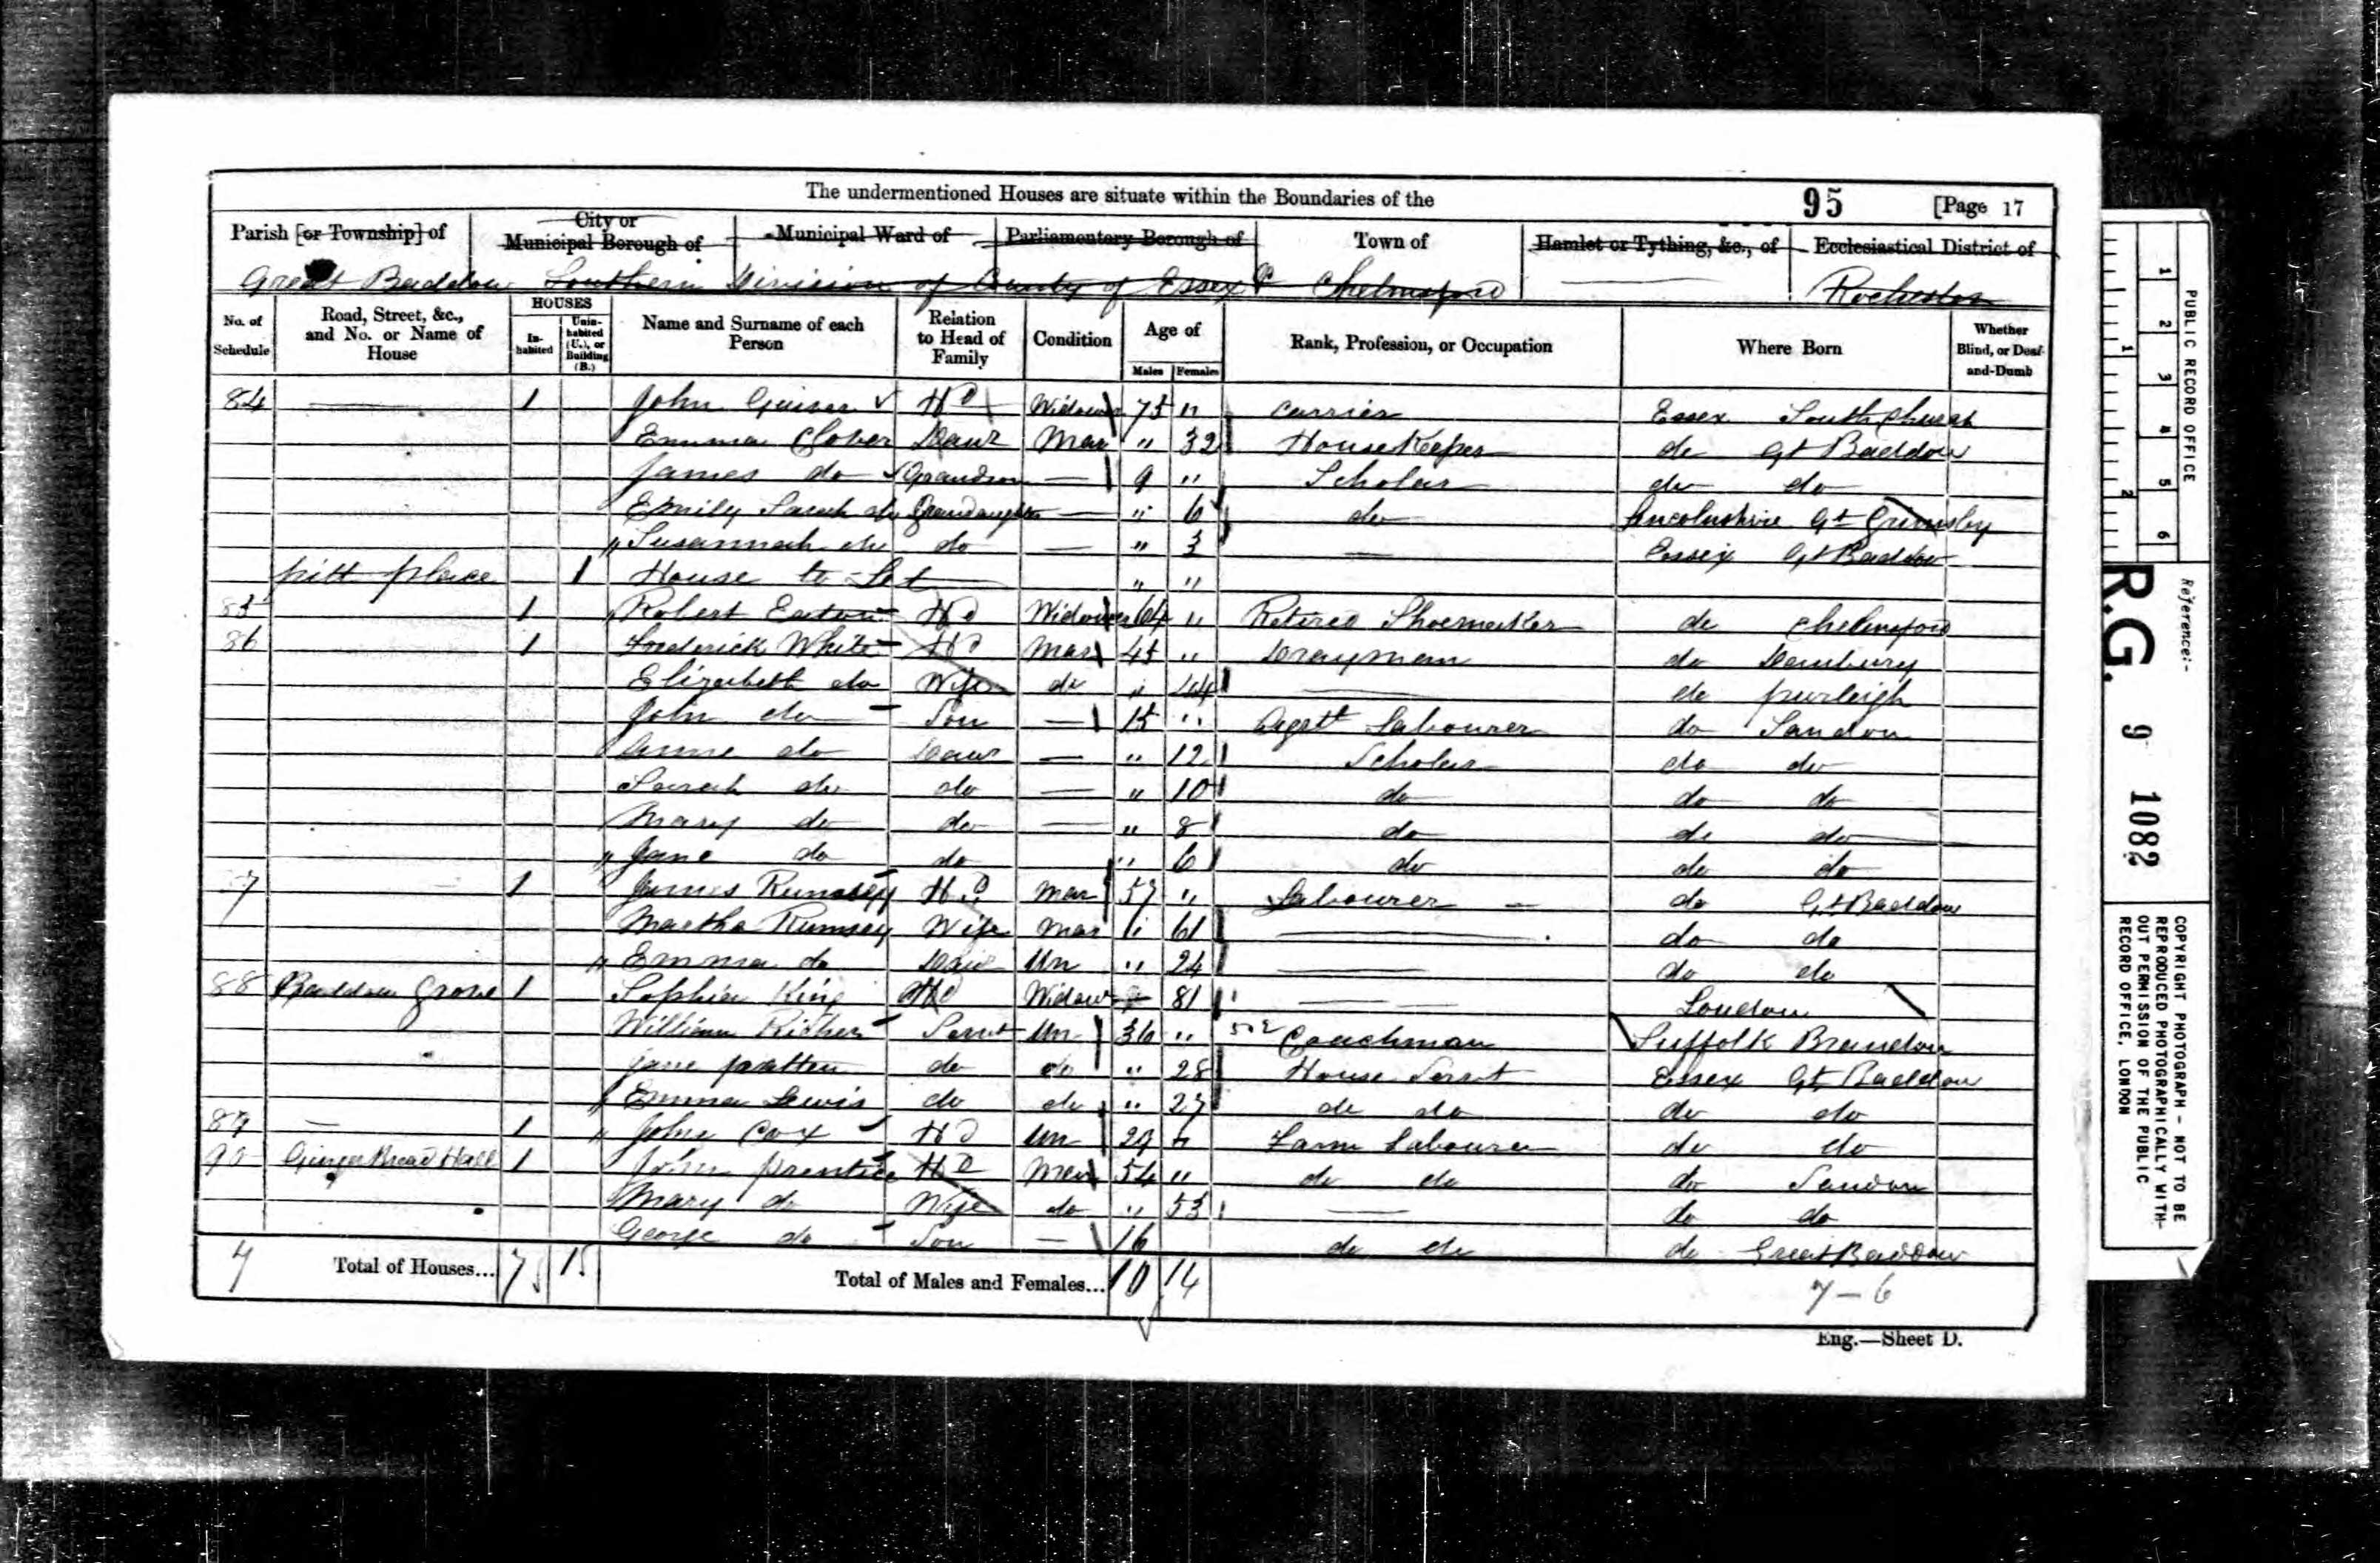 The undermentioned Houses are situate within the Boundaries of the 95 [Page 17
Parish [or Township] of City or Municipal Borough of Municipal Ward of Parliamentary Borough of Town of Hamlet or Tything, &c., of Ecclesiastical District of
Great Baddow Southern Division of County of Essex Chelmsford Rochester
No. of Schedule Road, Street, &c., and No. or Name of House HOUSES Inhabited Uninhabited (U.), or Building (B.) Name and Surname of each Person Relation to Head of Family Condition Age of Males Females Rank, Profession, or Occupation Where Born Whether Blind, or Deaf-and-Dumb
84 — 1 John Hd Widower 75 " Carrier Essex Southchurch
Emma Clover Daur Mar " 32 HouseKeeper do Gt Baddow
James do Grandson — 9 " Scholar do do
Emily Sarah do Grandaughter — " 6 do Lincolnshire Gt Grimsby
" Susannah do do — " 3 — Essex Gt Baddow
pitt place 1 House to Let " "
85 1 Robert Eaton Hd Widower 64 " Retired Shoemaker do Chelmsford
86 1 Frederick White Hd Mar 45 " Drayman do Danbury
Elizabeth do Wife do " 44 — do purleigh
John do Son — 15 " Agrl Labourer do Sandon
Anne do Daur — " 12 Scholar do do
Sarah do do — " 10 do do do
Mary do do — " 8 do do do
" Jane do do " 6 do do do
87 1 James Rumsey Hd Mar 57 " Labourer — do Gt Baddow
Martha Rumsey Wife Mar " 61 — do do
" Emma do Daur Un " 24 — do do
88 Baddow Grove 1 Sophia King Hd Widow " 81 — London
William Richer Servt Un 36 " Coachman Suffolk Brandon
Jane pratten do do " 28 House Servt Essex Gt Baddow
" Emma Lewis do do " 27 do do do do
89 — 1 " John Cox Hd Un 29 " Farm Labourer do do
90 GingerBread Hall 1 John prentice Hd Mar 54 " do do do Sandon
Mary do Wife do " 53 — do do
George do Son — 16 do do do Great Baddow
7 Total of Houses... 7 Total of Males and Females... 10 14
7 — 6
Eng.—Sheet D.
PUBLIC RECORD OFFICE
1 2 3 4 5 6
1 2
Reference:-
R.G. 9 1082
COPYRIGHT PHOTOGRAPH - NOT TO BE
REPRODUCED PHOTOGRAPHICALLY WITH-
OUT PERMISSION OF THE PUBLIC
RECORD OFFICE, LONDON